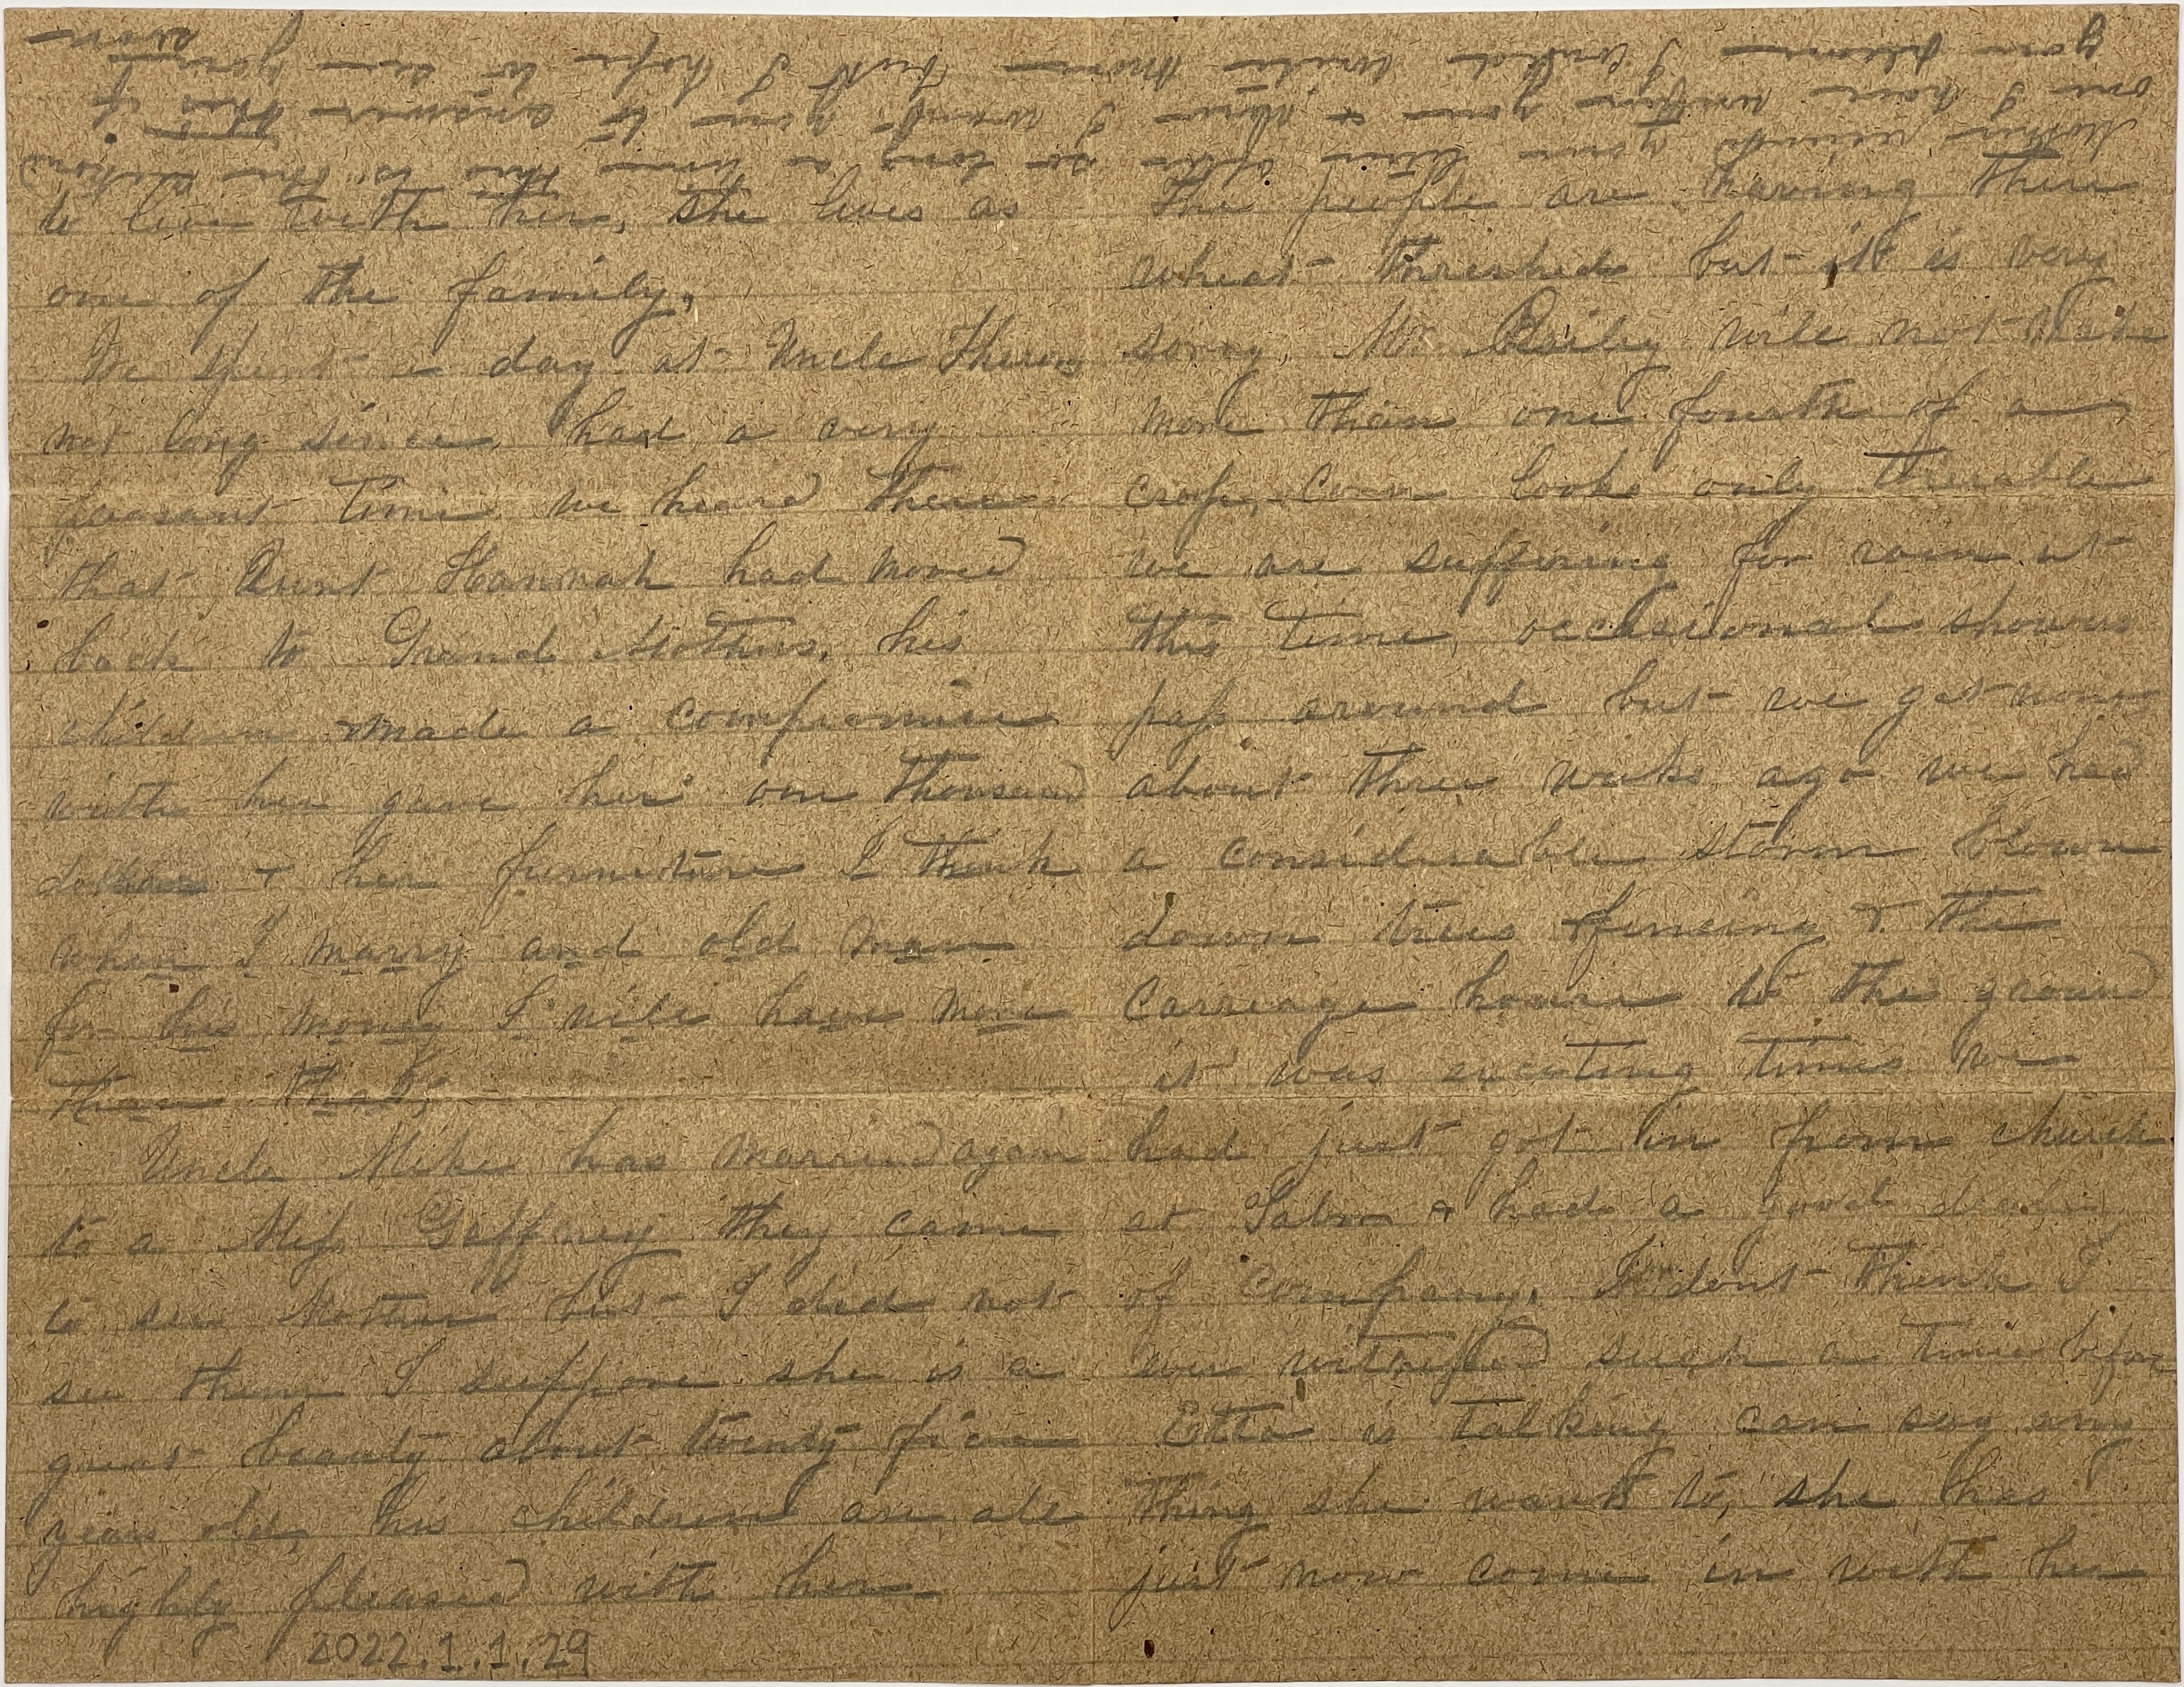 to live with her, she lives as
one of the family,
We spent a day at Uncle Therons
not long since, had a very
peasant time we heard there
that Aunt Hannah had moved
back to Grand Mothers, his
children made a compromise
with her gave her one thousand
dollars + her furniture I think
when I marry and old man
for his money I will have more
than that,
Uncle Mike has married again
to a Miss Gaffney they came
to see Mother but I did not
see them I suppose she is a
great beauty about twenty five
years old, his children are all
highly pleased with her
2022.1.1.29
The people are having there
wheat threshed but it is very
sorry, Mr. Bailey will not make
more than one fourth of a
crop, Corn looks only
we are suffering for rain at
this time, occasional showers
pass around but we get none
about three weeks ago we had
a considerable storm blown
down trees fencing & the
carriage house to the ground
it was exciting times we
had just got in from church
at + had a good deal
of company, I dont think I
ever witnessed such a time before
Etta is talking can say any
thing she wants to, she has
just now come in with her
Mother your letter so long a time this is the second
one I have written you + now I want you to answer this if
you please I could write more but I hope to see you soon